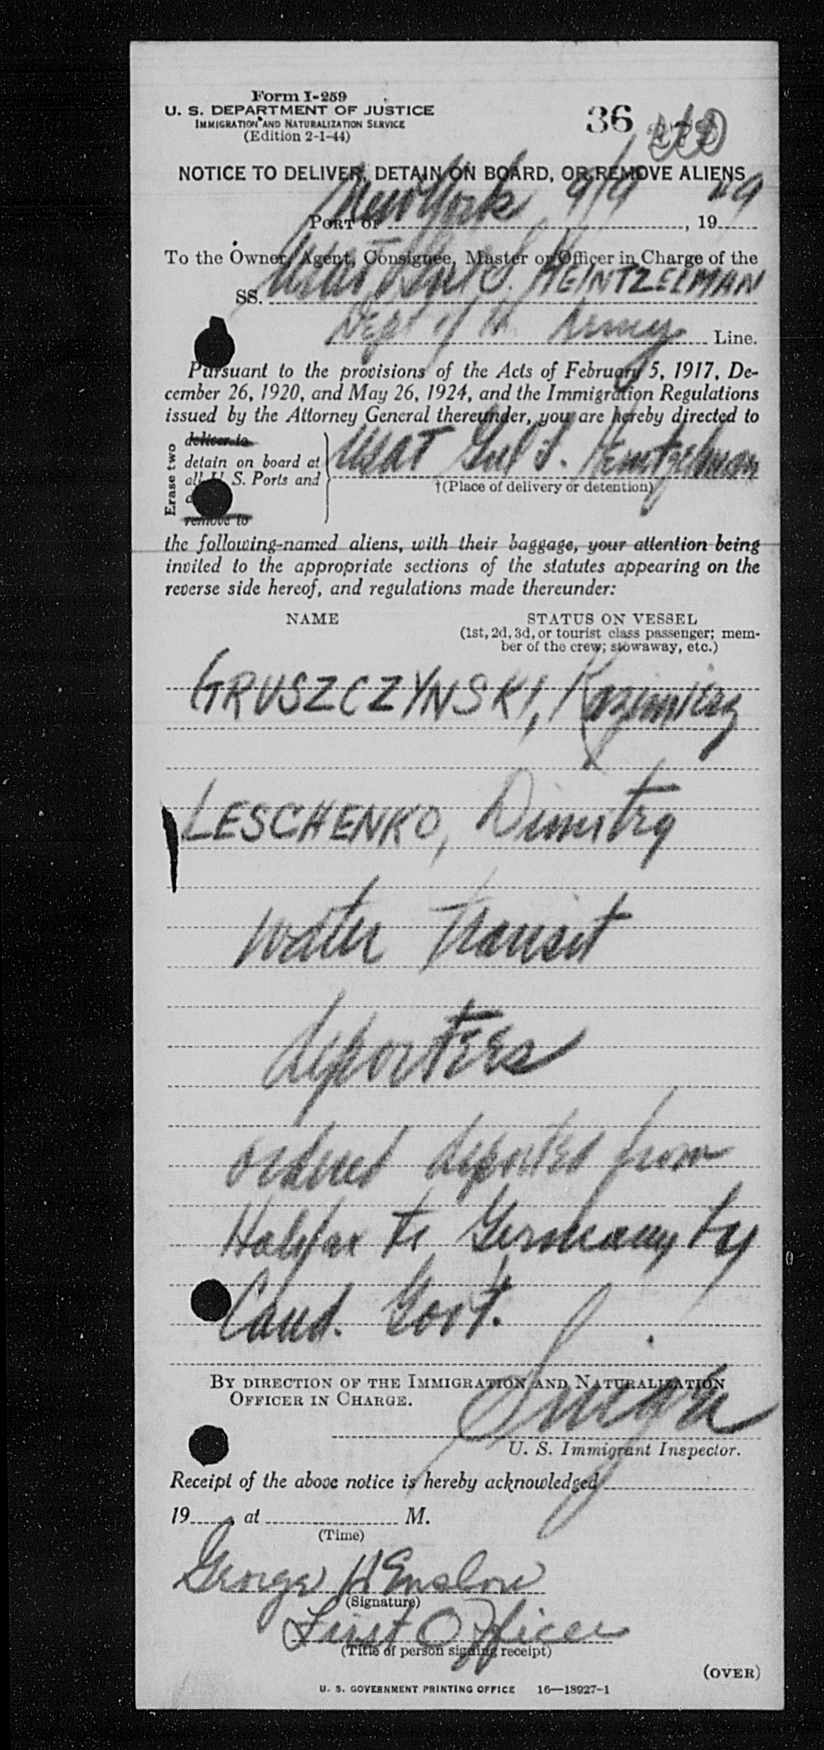 Form I-259
U. S. DEPARTMENT OF JUSTICE
IMMIGRATION AND NATURALIZATION SERVICE
(Edition 2-1-44)
36
NOTICE TO DELIVER, DETAIN ON BOARD, OR REMOVE ALIENS
PORT OF New York 9/9, 1949
To the Owner, Agent, Consignee, Master or Officer in Charge of the
SS. USAT Gnl S. HEINTZELMAN
Dept of th Army Line.
Pursuant to the provisions of the Acts of February 5, 1917, De-
cember 26, 1920, and May 26, 1924, and the Immigration Regulations
issued by the Attorney General thereunder, you are hereby directed to
Erase two
deliver to
detain on board at
all U. S. Ports and
remove to
USAT Gnl S. Heintzelman
†(Place of delivery or detention)
the following-named aliens, with their baggage, your attention being
invited to the appropriate sections of the statutes appearing on the
reverse side hereof, and regulations made thereunder:
NAME STATUS ON VESSEL
(1st, 2d, 3d, or tourist class passenger; mem-
ber of the crew; stowaway, etc.)
GRUSZCZYNSKI, Kazimierz
LESCHENKO, Dimitry
water transit
deportees
ordered deported from
Halifax to Germany by
Cand. Govt.
BY DIRECTION OF THE IMMIGRATION AND NATURALIZATION
OFFICER IN CHARGE.
U. S. Immigrant Inspector.
Receipt of the above notice is hereby acknowledged
19 , at M.
(Time)
George H Enslow
(Signature)
First Officer
(Title of person signing receipt)
(OVER)
U. S. GOVERNMENT PRINTING OFFICE 16—18927-1